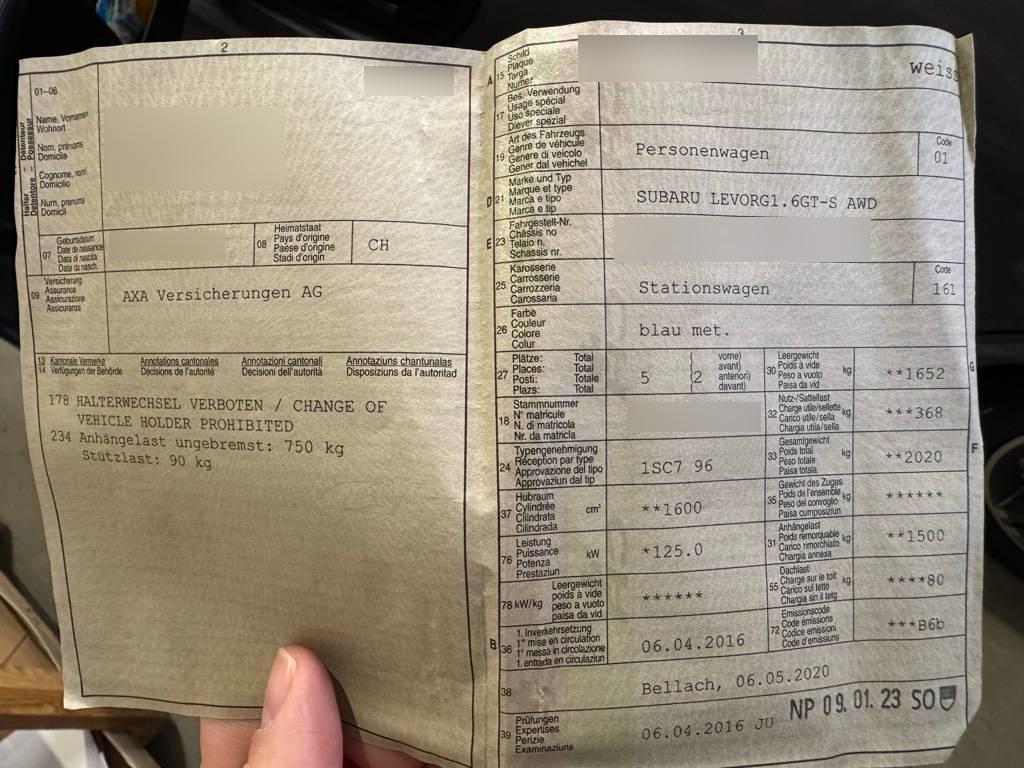 2
01–06
Halter – Détenteur
Detentore – Possessur
Name, Vornamen
Wohnort
Nom, prénoms
Domicile
Cognome, nomi
Domicilio
Num, prenums
Domicil
07 Geburtsdatum
Date de naissance
Data di nascita
Data da nasch.
08 Heimatstaat
Pays d'origine
Paese d'origine
Stadi d'origin
CH
09 Versicherung
Assurance
Assicurazione
Assicuranza
AXA Versicherungen AG
13 Kantonale Vermerke Annotations cantonales Annotazioni cantonali Annotaziuns chantunalas
14 Verfügungen der Behörde Décisions de l'autorité Decisioni dell'autorità Disposiziuns da l'autoritad
178 HALTERWECHSEL VERBOTEN / CHANGE OF
VEHICLE HOLDER PROHIBITED
234 Anhängelast ungebremst: 750 kg
Stützlast: 90 kg
3
A 15 Schild
Plaque
Targa
Numer
weiss
17 Bes. Verwendung
Usage spécial
Uso speciale
Diever spezial
19 Art des Fahrzeugs
Genre de véhicule
Genere di veicolo
Gener dal vehichel
Personenwagen
Code
01
D 21 Marke und Typ
Marque et type
Marca e tipo
Marca e tip
SUBARU LEVORG1.6GT-S AWD
E 23 Fahrgestell-Nr.
Châssis no
Telaio n.
Schassis nr.
25 Karosserie
Carrosserie
Carrozzeria
Carossaria
Stationswagen
Code
161
26 Farbe
Couleur
Colore
Colur
blau met.
27 Plätze: Total
Places: Total
Posti: Totale
Plazs: Total
5 2
vorne)
avant)
anteriori)
davant)
G 30 Leergewicht
Poids à vide
Peso a vuoto
Paisa da vid
kg
**1652
18 Stammnummer
N° matricule
N. di matricola
Nr. da matricla
32 Nutz-/Sattellast
Charge utile/sellette
Carico utile/sella
Chargia utila/sella
kg
***368
24 Typengenehmigung
Réception par type
Approvazione del tipo
Approvaziun dal tip
1SC7 96
F 33 Gesamtgewicht
Poids total
Peso totale
Paisa totala
kg
**2020
37 Hubraum
Cylindrée
Cilindrata
Cilindrada
cm³
**1600
35 Gewicht des Zuges
Poids de l'ensemble
Peso del convoglio
Paisa cumposiziun
kg
******
76 Leistung
Puissance
Potenza
Prestaziun
kW
*125.0
31 Anhängelast
Poids remorquable
Carico rimorchiato
Chargia annexa
kg
**1500
78 kW/kg Leergewicht
poids à vide
peso a vuoto
paisa da vid
******
55 Dachlast
Charge sur le toit
Carico sul tetto
Chargia sin il tetg
kg
****80
B 36 1. Inverkehrsetzung
1re mise en circulation
1a messa in circolazione
1. entrada en circulaziun
06.04.2016
72 Emissionscode
Code émissions
Codice emissioni
Code d'emissiuns
***B6b
38
Bellach, 06.05.2020
39 Prüfungen
Expertises
Perizie
Examinaziuns
06.04.2016 JU
NP 09. 01. 23 SO